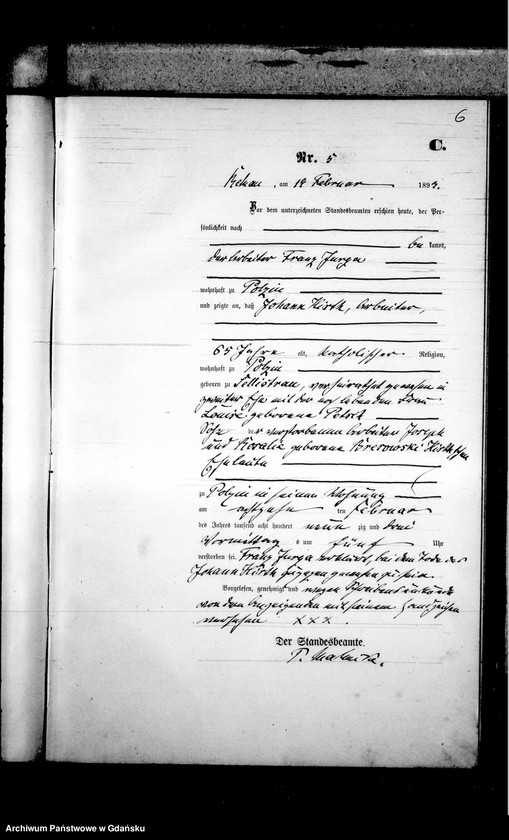 6
C.
Nr. 5
am 18 Februar 1893.
Vor dem unterzeichneten Standesbeamten erschien heute, der Per-
sönlichkeit nach
be kannt,
der Arbeiter Franz Jurga
wohnhaft zu Polzin
und zeigte an, daß Johann Hirth, Arbeiter,
65 Jahre alt, katholischer Religion,
wohnhaft zu Polzin
geboren zu verheirathet gewesen in
zweiter Ehe mit der noch lebenden Frau
Louise geborene
Sohn der verstorbenen Arbeiter Joseph
und Rosalie geborene Bresowski Hirth'schen
Eheleute
zu Polzin in seiner Wohnung
am achtzehn ten Februar
des Jahres tausend acht hundert neun zig und drei
Vormittag s um fünf Uhr
verstorben sei. Franz Jurga erklärt, bei dem Tode des
Johann Hirth zugegen gewesen zu sein
Vorgelesen, genehmigt und wegen Schreibensunkunde
von dem Anzeigenden mit seinem Handzeichen
versehen XXX.
Der Standesbeamte.
Archiwum Państwowe w Gdańsku